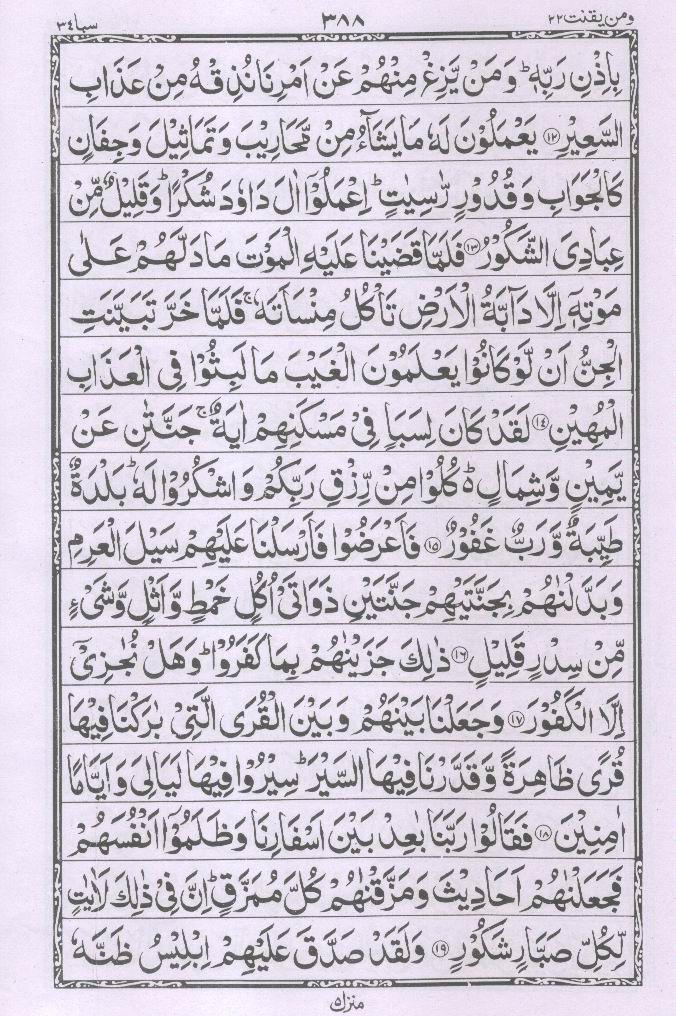 ومن يقنت ٢٢
٣٨٨
سبا ٣٤
بِاِذۡنِ رَبِّهٖ ؕ وَمَنۡ يَّزِغۡ مِنۡهُمۡ عَنۡ اَمۡرِنَا نُذِقۡهُ مِنۡ عَذَابِ
السَّعِيۡرِ ﴿۱۲﴾ يَعۡمَلُوۡنَ لَهٗ مَا يَشَآءُ مِنۡ مَّحَارِيۡبَ وَتَمَاثِيۡلَ وَجِفَانٍ
كَالۡجَوَابِ وَقُدُوۡرٍ رّٰسِيٰتٍ ؕ اِعۡمَلُوۡۤا اٰلَ دَاوٗدَ شُكۡرًا ؕ وَقَلِيۡلٌ مِّنۡ
عِبَادِىَ الشَّكُوۡرُ ﴿۱۳﴾ فَلَمَّا قَضَيۡنَا عَلَيۡهِ الۡمَوۡتَ مَا دَلَّهُمۡ عَلٰى
مَوۡتِهٖۤ اِلَّا دَآبَّةُ الۡاَرۡضِ تَاۡكُلُ مِنۡسَاَتَهٗ ۚ فَلَمَّا خَرَّ تَبَيَّنَتِ
الۡجِنُّ اَنۡ لَّوۡ كَانُوۡا يَعۡلَمُوۡنَ الۡغَيۡبَ مَا لَبِثُوۡا فِى الۡعَذَابِ
الۡمُهِيۡنِ ﴿۱۴﴾ لَقَدۡ كَانَ لِسَبَاٍ فِىۡ مَسۡكَنِهِمۡ اٰيَةٌ ۚ جَنَّتٰنِ عَنۡ
يَّمِيۡنٍ وَّشِمَالٍ ؕ۬ كُلُوۡا مِنۡ رِّزۡقِ رَبِّكُمۡ وَاشۡكُرُوۡا لَهٗ ؕ بَلۡدَةٌ
طَيِّبَةٌ وَّرَبٌّ غَفُوۡرٌ ﴿۱۵﴾ فَاَعۡرَضُوۡا فَاَرۡسَلۡنَا عَلَيۡهِمۡ سَيۡلَ الۡعَرِمِ
وَبَدَّلۡنٰهُمۡ بِجَنَّتَيۡهِمۡ جَنَّتَيۡنِ ذَوَاتَىۡ اُكُلٍ خَمۡطٍ وَّاَثۡلٍ وَّشَىۡءٍ
مِّنۡ سِدۡرٍ قَلِيۡلٍ ﴿۱۶﴾ ذٰلِكَ جَزَيۡنٰهُمۡ بِمَا كَفَرُوۡا ؕ وَهَلۡ نُجٰزِىۡۤ
اِلَّا الۡكَفُوۡرَ ﴿۱۷﴾ وَجَعَلۡنَا بَيۡنَهُمۡ وَبَيۡنَ الۡقُرَى الَّتِىۡ بٰرَكۡنَا فِيۡهَا
قُرًى ظَاهِرَةً وَّقَدَّرۡنَا فِيۡهَا السَّيۡرَ ؕ سِيۡرُوۡا فِيۡهَا لَيَالِىَ وَاَيَّامًا
اٰمِنِيۡنَ ﴿۱۸﴾ فَقَالُوۡا رَبَّنَا بٰعِدۡ بَيۡنَ اَسۡفَارِنَا وَظَلَمُوۡۤا اَنۡفُسَهُمۡ
فَجَعَلۡنٰهُمۡ اَحَادِيۡثَ وَمَزَّقۡنٰهُمۡ كُلَّ مُمَزَّقٍ ؕ اِنَّ فِىۡ ذٰلِكَ لَاٰيٰتٍ
لِّكُلِّ صَبَّارٍ شَكُوۡرٍ ﴿۱۹﴾ وَلَقَدۡ صَدَّقَ عَلَيۡهِمۡ اِبۡلِيۡسُ ظَنَّهٗ
منزل ٥